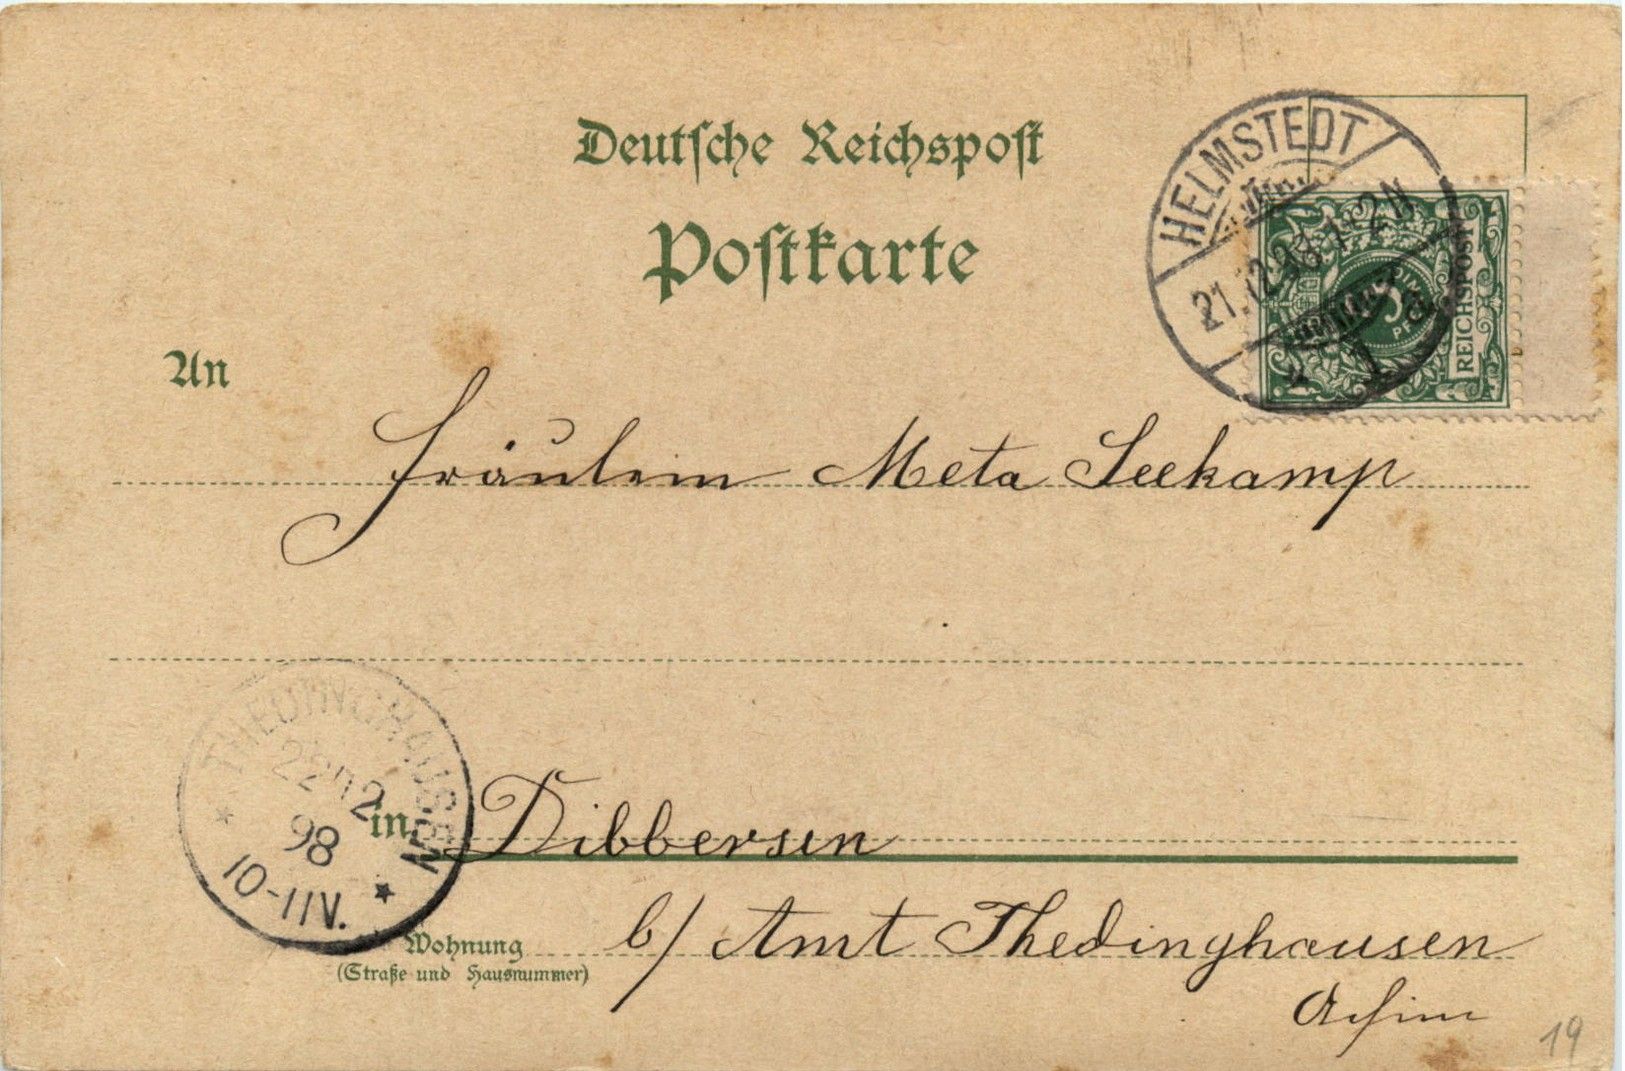 Deutsche Reichspost
Postkarte
HELMSTEDT
21.12.98.1-2N
REICHSPOST
An
Fräulein Meta Seekamp
THEDINGHAUSEN
22 12
98
10-11V.
in Dibbersen
Wohnung b/ Amt Thedinghausen
(Straße und Hausnummer)
Achim
19